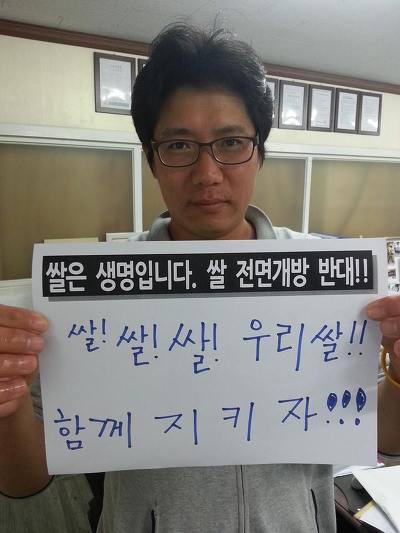 쌀은 생명입니다. 쌀 전면개방 반대!!
쌀! 쌀! 쌀! 우리쌀!!
함께 지키자!!!